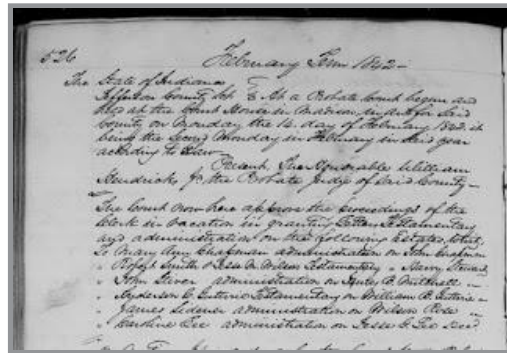 526 February Term 1842 -
The State of Indiana
Jefferson County Sct. At a Probate Court begun and
held at the Court House in Madison in and for Said
County on Monday the 14 day of February 1842 it
being the Second Monday in February in said year
according to Law -
Present The Honorable William
Hendricks Jr the Probate Judge of Said County -
The Court now here approve the proceedings of the
Clerk in vacation in granting Letters Testamentary
and administration on the following Estates towit,
To Mary Ann Chapman administration on John Chapman
" Robert Smith & Jesse M. Wilson Testamentary " Harry
" John administration on B. Mitchell "
" Anderson C. Guthrie Testamentary on William B. Guthrie "
" James administration on Wilson Rose "
" Caroline Lee administration on Jesse C. Lee Decd